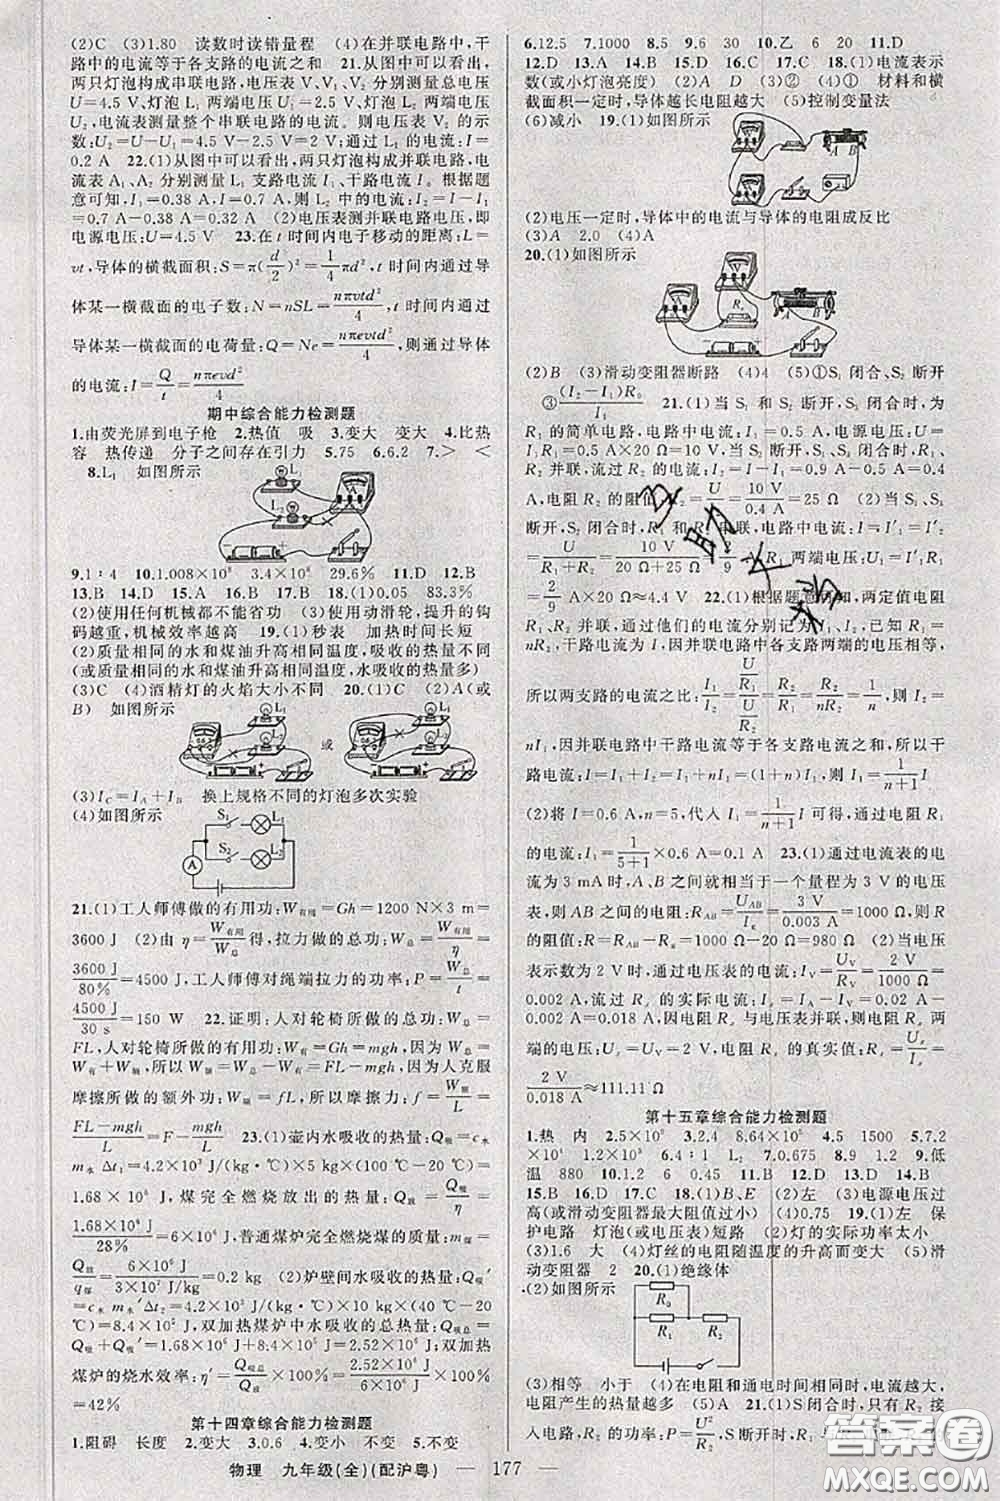 (2)C (3)1.80 读数时读错量程 (4)在并联电路中,干
路中的电流等于各支路的电流之和 21.从图中可以看出,
两只灯泡构成串联电路,电压表 V、V₁、V₂ 分别测量总电压
U=4.5 V、灯泡 L₁ 两端电压 U₁、灯泡 L₂ 两端电压
U₂,电流表测量整个串联电路的电流。则电压表 V₂ 的示
数:U₂=U-U₁=4.5 V-2.5 V=2 V;通过 L₁ 的电流:I=
0.2 A 22.(1)从图中可以看出,两只灯泡构成并联电路,电
流表 A₁、A₂ 分别测量 L₁ 支路电流 I₁、干路电流 I。根据题
意可知,I₁=0.38 A,I=0.7 A,则 L₂ 中的电流:I₂=I-I₁
=0.7 A-0.38 A=0.32 A (2)电压表测并联电路电压,即
电源电压:U=4.5 V 23.在 t 时间内电子移动的距离:L=
vt,导体的横截面积:S=π(d/2)²=1/4πd²,t 时间内通过导
体某一横截面的电子数:N=nSL=nπvtd²/4,t 时间内通过
导体某一横截面的电荷量:Q=Ne=nπevtd²/4,则通过导体
的电流:I=Q/t=nπevd²/4
期中综合能力检测题
1.由荧光屏到电子枪 2.热值 吸 3.变大 变大 4.比热
容 热传递 分子之间存在引力 5.75 6.6.2 7.> <
8.L₁ 如图所示
L₁
L₂
A
9.1∶4 10.1.008×10⁸ 3.4×10⁸ 29.6% 11.D 12.B
13.B 14.D 15.B 16.D 17.B 18.(1)0.05 83.3%
(2)使用任何机械都不能省功 (3)使用动滑轮,提升的钩
码越重,机械效率越高 19.(1)秒表 加热时间长短
(2)质量相同的水和煤油升高相同温度,吸收的热量不同
(或质量相同的水和煤油升高相同温度,水吸收的热量多)
(3)C (4)酒精灯的火焰大小不同 20.(1)C (2)A(或
B) 如图所示
L₁
L₂
或
L₁
L₂
(3)I_C=I_A+I_B 换上规格不同的灯泡多次实验
(4)如图所示
S₁ L₁
S₂ L₂
A
21.(1)工人师傅做的有用功:W有用=Gh=1200 N×3 m=
3600 J (2)由 η=W有用/W总 得,拉力做的总功:W总=W有用/η=
3600 J/80%=4500 J,工人师傅对绳端拉力的功率:P=W总/t=
4500 J/30 s=150 W 22.证明:人对轮椅所做的总功:W总=
FL,人对轮椅所做的有用功:W有=Gh=mgh,因为 W总=
W有+W额,所以 W额=W总-W有=FL-mgh,因为人克服
摩擦所做的额外功:W额=fL,所以摩擦力:f=W额/L=
FL-mgh/L=F-mgh/L 23.(1)壶内水吸收的热量:Q吸=c水
m水Δt₁=4.2×10³ J/(kg·℃)×5 kg×(100℃-20℃)=
1.68×10⁶ J,煤完全燃烧放出的热量:Q放=Q吸/η=
1.68×10⁶ J/28%=6×10⁶ J,普通煤炉完全燃烧煤的质量:m煤=
Q放/q煤=6×10⁶ J/3×10⁷ J/kg=0.2 kg (2)炉壁间水吸收的热量:Q吸′
=c水m水′Δt₂=4.2×10³ J/(kg·℃)×10 kg×(40℃-20
℃)=8.4×10⁵ J,双加热煤炉中水吸收的总热量:Q吸总=
Q吸+Q吸′=1.68×10⁶ J+8.4×10⁵ J=2.52×10⁶ J,双加热
煤炉的烧水效率:η′=Q吸总/Q放×100%=2.52×10⁶ J/6×10⁶ J×100%
=42%
第十四章综合能力检测题
1.阻碍 长度 2.变大 3.0.6 4.变小 不变 5.不变
6.12.5 7.1000 8.5 9.6 30 10.乙 6 20 11.D
12.D 13.A 14.D 15.B 16.C 17.C 18.(1)电流表示
数(或小灯泡亮度) (2)A D (3)② (4)① 材料和横
截面积一定时,导体越长电阻越大 (5)控制变量法
(6)减小 19.(1)如图所示
A B
(2)电压一定时,导体中的电流与导体的电阻成反比
(3)A 2.0 (4)A
20.(1)如图所示
V
Rₓ
A B
(2)B (3)滑动变阻器断路 (4)4 (5)①S₁ 闭合、S₂ 断开
③(I₂-I₁)R₀/I₁ 21.(1)当 S₁ 和 S₂ 断开,S₃ 闭合时,为
R₁ 的简单电路,电路中电流:I₁=0.5 A,电源电压:U=
I₁R₁=0.5 A×20 Ω=10 V,当 S₂ 断开,S₁、S₃ 闭合时,R₁、
R₂ 并联,流过 R₂ 的电流:I₂=I-I₁=0.9 A-0.5 A=0.4
A,电阻 R₂ 的阻值:R₂=U/I₂=10 V/0.4 A=25 Ω (2)当 S₁、S₃
断开,S₂ 闭合时,R₁ 和 R₂ 串联,电路中电流:I′=I′₁=I′₂
=U/R₁+R₂=10 V/20 Ω+25 Ω=2/9 A,R₁ 两端电压:U₁=I′₁R₁
=2/9 A×20 Ω≈4.4 V 22.(1)根据题意可知,两定值电阻
R₁、R₂ 并联,通过他们的电流分别记为 I₁、I₂,已知 R₁=
nR₂,干路电流为 I,因为并联电路中各支路两端的电压相等,
所以两支路的电流之比:I₁/I₂=U/R₁/U/R₂=R₂/R₁=R₂/nR₂=1/n,则 I₂=
nI₁,因并联电路中干路电流等于各支路电流之和,所以干
路电流:I=I₁+I₂=I₁+nI₁=(1+n)I₁,则 I₁=1/n+1 I
(2)将 I=0.6 A,n=5,代入 I₁=1/n+1 I 可得,通过电阻 R₁
的电流:I₁=1/5+1×0.6 A=0.1 A 23.(1)通过电流表的电
流为 3 mA时,A、B 之间就相当于一个量程为 3 V 的电压
表,则 AB 之间的电阻:R_AB=U_AB/I_g=3 V/0.003 A=1000 Ω,则 R
的阻值:R=R_AB-R_g=1000 Ω-20 Ω=980 Ω (2)当电压
表示数为 2 V 时,通过电压表的电流:I_V=U_V/R_V=2 V/1000 Ω=
0.002 A,流过 Rₓ 的实际电流:Iₓ=I_A-I_V=0.02 A-
0.002 A=0.018 A,因电阻 Rₓ 与电压表并联,则 Rₓ 两
端的电压:Uₓ=U_V=2 V,电阻 Rₓ 的真实值:Rₓ=Uₓ/Iₓ=
2 V/0.018 A≈111.11 Ω
第十五章综合能力检测题
1.热 内 2.5×10⁵ 3.2.4 8.64×10⁵ 4.5 1500 5.7.2
×10⁴ 1.2×10³ 6.4∶1 7.0.675 8.9 1.2 9.低
温 880 10.1.2 6 0.45 11.B 12.D 13.D 14.B
15.B 16.D 17.D 18.(1)B、E (2)左 (3)电源电压过
高(或滑动变阻器最大阻值过小) (4)0.75 19.(1)左 保
护电路 灯泡(或电压表)短路 (2)灯的实际功率太小
(3)1.6 大 (4)灯丝的电阻随温度的升高而变大 (5)滑
动变阻器 2 20.(1)绝缘体
(2)如图所示
R₀
R₁ R₂
(3)相等 小于 (4)在电阻和通电时间相同时,电流越大,
电阻产生的热量越多 (5)A 21.(1)S闭合时,只有 R₂ 接
入电路,电功率:P=U²/R₂,S断开时,
物理 九年级(全)(配沪粤) — 177 —
互助文档
答案圈
MXQE.COM